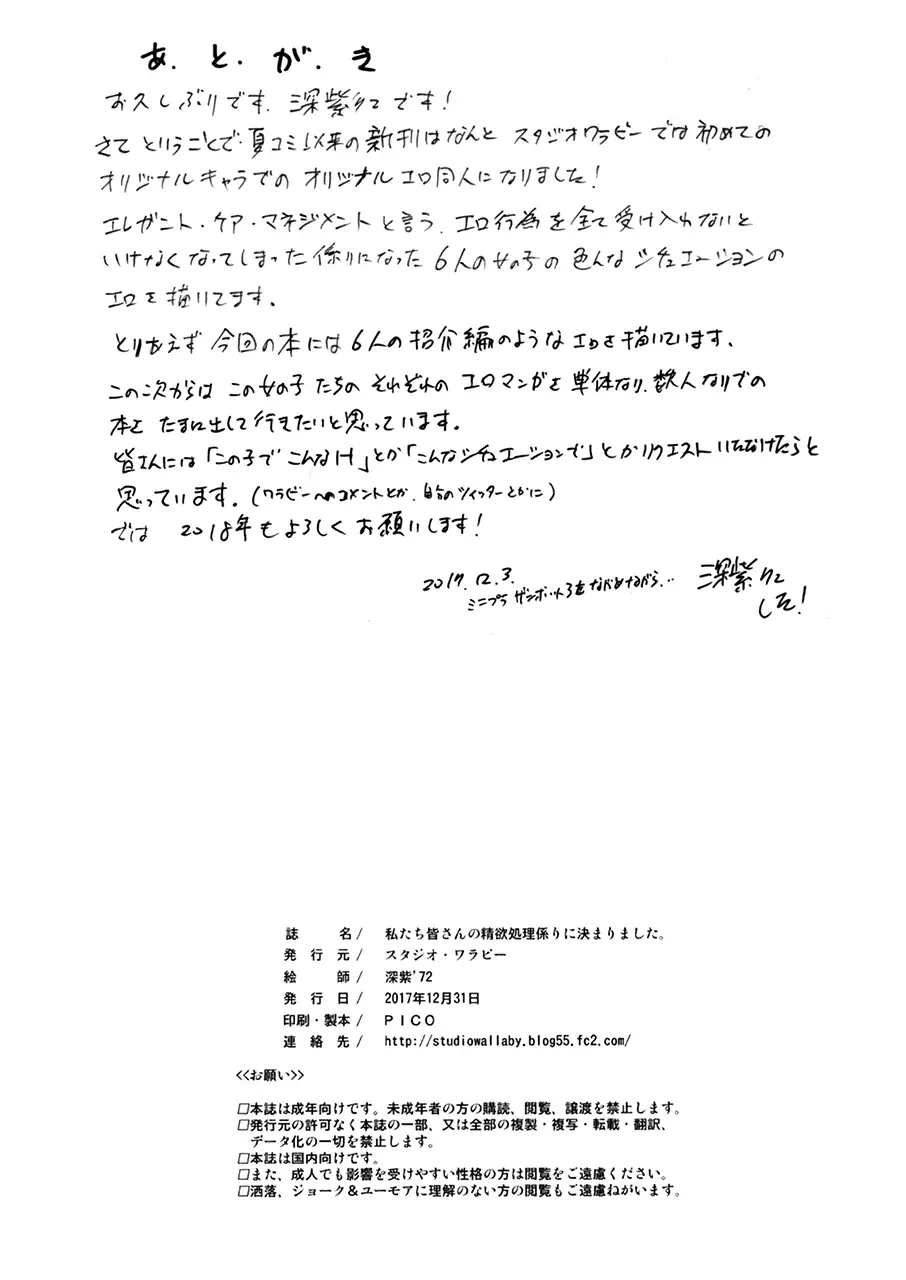 あ.と.が.き
お久しぶりです.深紫'72です!
さてということで.夏コミ以来の新刊はなんとスタジオワラビーでは初めての
オリジナルキャラでのオリジナルエロ同人になりました!
エレガント・ケア・マネジメントと言う.エロ行為を全て受け入れないと
いけなくなってしまった係りになった6人の女の子の色んなシチュエーションの
エロを描いてます.
とりあえず今回の本には6人の紹介編のようなエロを描いています.
この次からはこの女の子たちのそれぞれのエロマンガを単体なり.数人なりでの
本をたまに出して行きたいと思っています.
皆さんには「この子でこんなH」とか「こんなシチュエーションで」とかリクエストいただけたらと
思っています.(ワラビーへのコメントとか.自分のツイッターとかに)
では 2018年もよろしくお願いします!
2017.12.3.
ミニプラ ザンボット3をながめながら...
深紫'72
でした!
誌名/ 私たち皆さんの精欲処理係りに決まりました。
発行元/ スタジオ・ワラビー
絵師/ 深紫'72
発行日/ 2017年12月31日
印刷・製本/ PICO
連絡先/ http://studiowallaby.blog55.fc2.com/
<<お願い>>
□本誌は成年向けです。未成年者の方の購読、閲覧、譲渡を禁止します。
□発行元の許可なく本誌の一部、又は全部の複製・複写・転載・翻訳、
データ化の一切を禁止します。
□本誌は国内向けです。
□また、成人でも影響を受けやすい性格の方は閲覧をご遠慮ください。
□洒落、ジョーク&ユーモアに理解のない方の閲覧もご遠慮ねがいます。